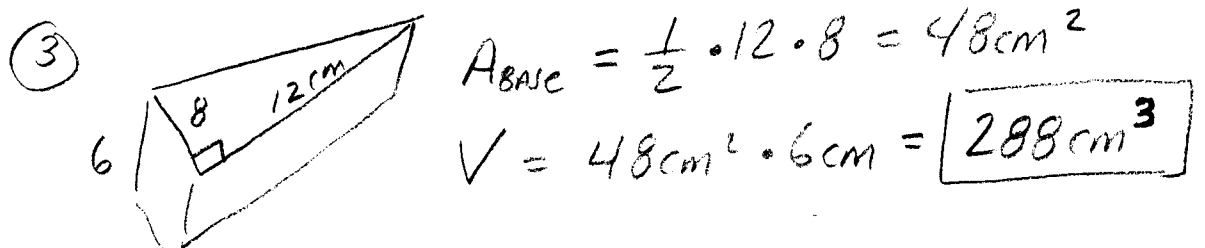 3
8 12cm
6
A BASE = 1/2 · 12 · 8 = 48cm²
V = 48cm² · 6cm = 288cm³